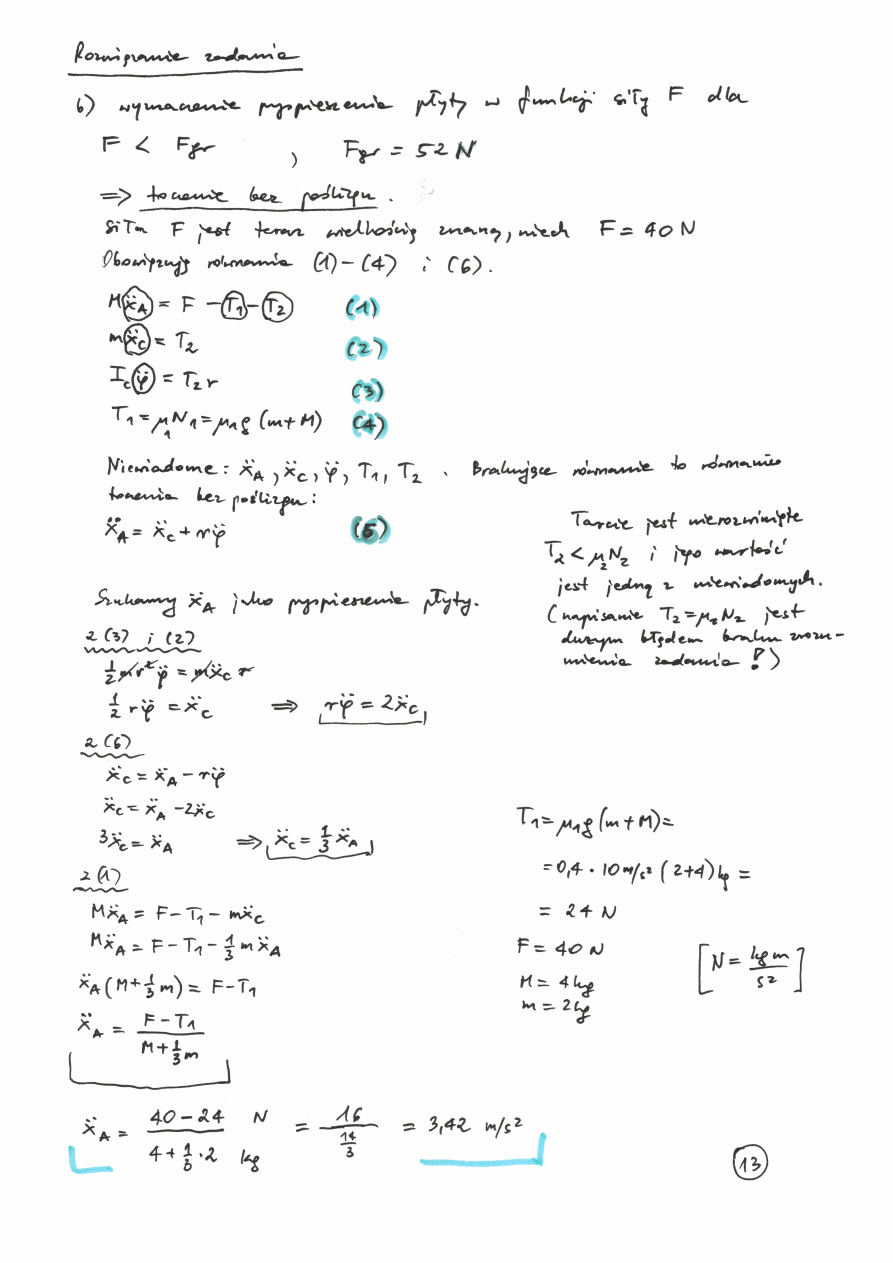 Rozwiązanie zadania
b) wyznaczenie przyspieszenia płyty w funkcji siły F dla
F < Fgr , Fgr = 52 N
=> toczenie bez poślizgu.
Siła F jest teraz wielkością znaną, niech F = 40 N
Obowiązują równania (1)-(4) i (6).
Mẍ_A = F - T₁ - T₂ (1)
mẍ_C = T₂ (2)
I_C φ̈ = T₂ r (3)
T₁ = μ₁N₁ = μ₁g (m+M) (4)
Niewiadome: ẍ_A, ẍ_C, φ̈, T₁, T₂. Brakujące równanie to równanie
toczenia bez poślizgu:
ẍ_A = ẍ_C + rφ̈ (6)
Tarcie jest nierozwinięte
T₂ < μ₂N₂ i jego wartość
jest jedną z niewiadomych.
(napisanie T₂ = μ₂N₂ jest
dużym błędem braku zrozu-
mienia zadania !)
Szukamy ẍ_A jako przyspieszenie płyty.
z (3) i (2)
½ mr² φ̈ = mẍ_C r
½ rφ̈ = ẍ_C => rφ̈ = 2ẍ_C
z (6)
ẍ_C = ẍ_A - rφ̈
ẍ_C = ẍ_A - 2ẍ_C
3ẍ_C = ẍ_A => ẍ_C = ⅓ ẍ_A
z (1)
Mẍ_A = F - T₁ - mẍ_C
Mẍ_A = F - T₁ - ⅓ m ẍ_A
ẍ_A (M + ⅓ m) = F - T₁
ẍ_A = (F - T₁) / (M + ⅓ m)
T₁ = μ₁g (m+M) =
= 0,4 · 10 m/s² (2+4) kg =
= 24 N
F = 40 N
M = 4 kg
m = 2 kg
[N = kg m / s²]
ẍ_A = (40 - 24) / (4 + ⅓ · 2) N / kg = 16 / (14/3) = 3,42 m/s²
13